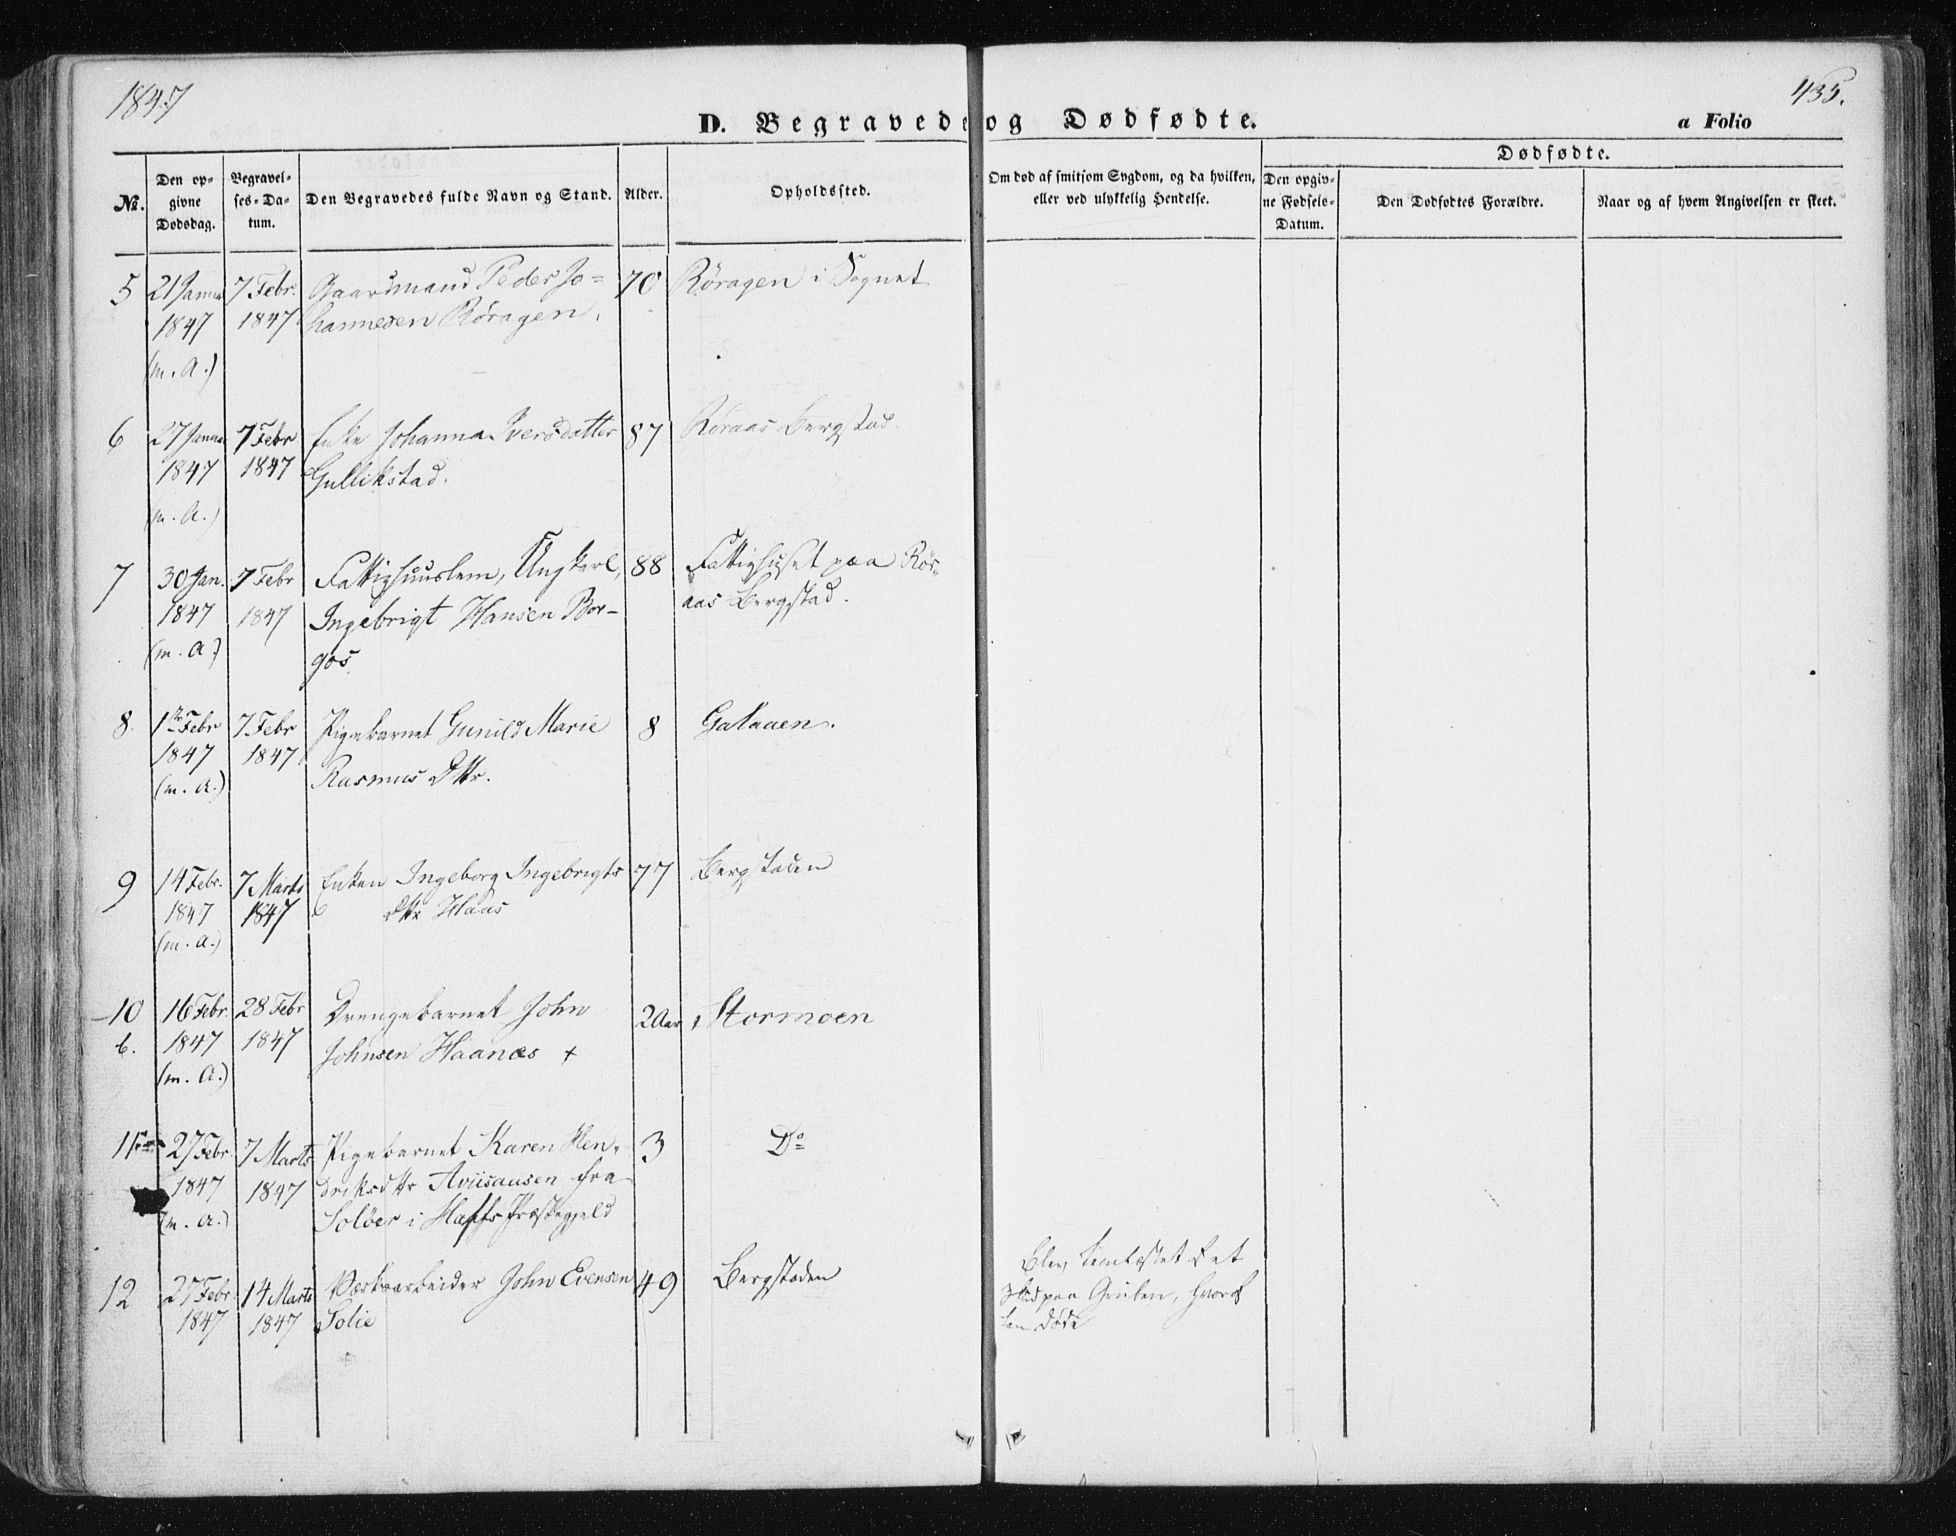 1847
435.
D. Begravede og Dødfødte.
a Folio
№.
Den op-
givne
Dødsdag.
Begravel-
ses-Da-
tum.
Den Begravedes fulde Navn og Stand.
Alder.
Opholdssted.
Om død af smitsom Sygdom, og da hvilken,
eller ved ulykkelig Hendelse.
Dødfødte.
Den opgiv-
ne Fødsels-
Datum.
Den Dødfødtes Forældre.
Naar og af hvem Angivelsen er skeet.
5 21 Janua 7 Febr. Gaardmand Peder Jo= 70 Røragen i Sognet
1847 1847 hannesen Røragen.
(m. A.)
6 27 Janua 7 Febr Enke Johanna Iversdatter 87 Røraas Bergstad.
1847 1847 Gullikstad.
(m. A.)
7 30 Jan. 7 Febr Fattighuuslem, Ungkarl, 88 Fattighuset paa Rør-
1847 1847 Ingebrigt Hansen Bor- aas Bergstad.
(m. A.) gos
8. 1ste Febr 7 Febr Pigebarnet Gunild Marie 8 Galaaen.
1847 1847 Rasmus Dttr.
(m. A.)
9 14 Febr. 7 Marts Enken Ingeborg Ingebrigts 77 Bergstaden
1847 1847 Dttr Haas
(m. A.)
10 16 Febr. 28 Febr Drengebarnet John 2 Aar Stormoen
b. 1847 1847 Johnsen Haanæs +
(m. A.)
11 27 Febr. 7 Marts Pigebarnet Karen Hen- 3 Do
1847 1847 driksdttr fra
(m. A.) Soløer i Hoffs Præstegjeld
12 27 Febr. 14 Marts Værksarbeider John Evensen 49 Bergstaden Blev
1847 1847 Solie paa Gruben, hvoraf
han døde